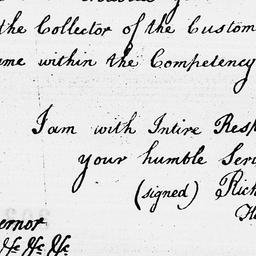 the Collector of the Custom
ame within the Competency
I am with Intire Resp
your humble Ser
(signed) Rich
Ha
ernor
&c &c &c